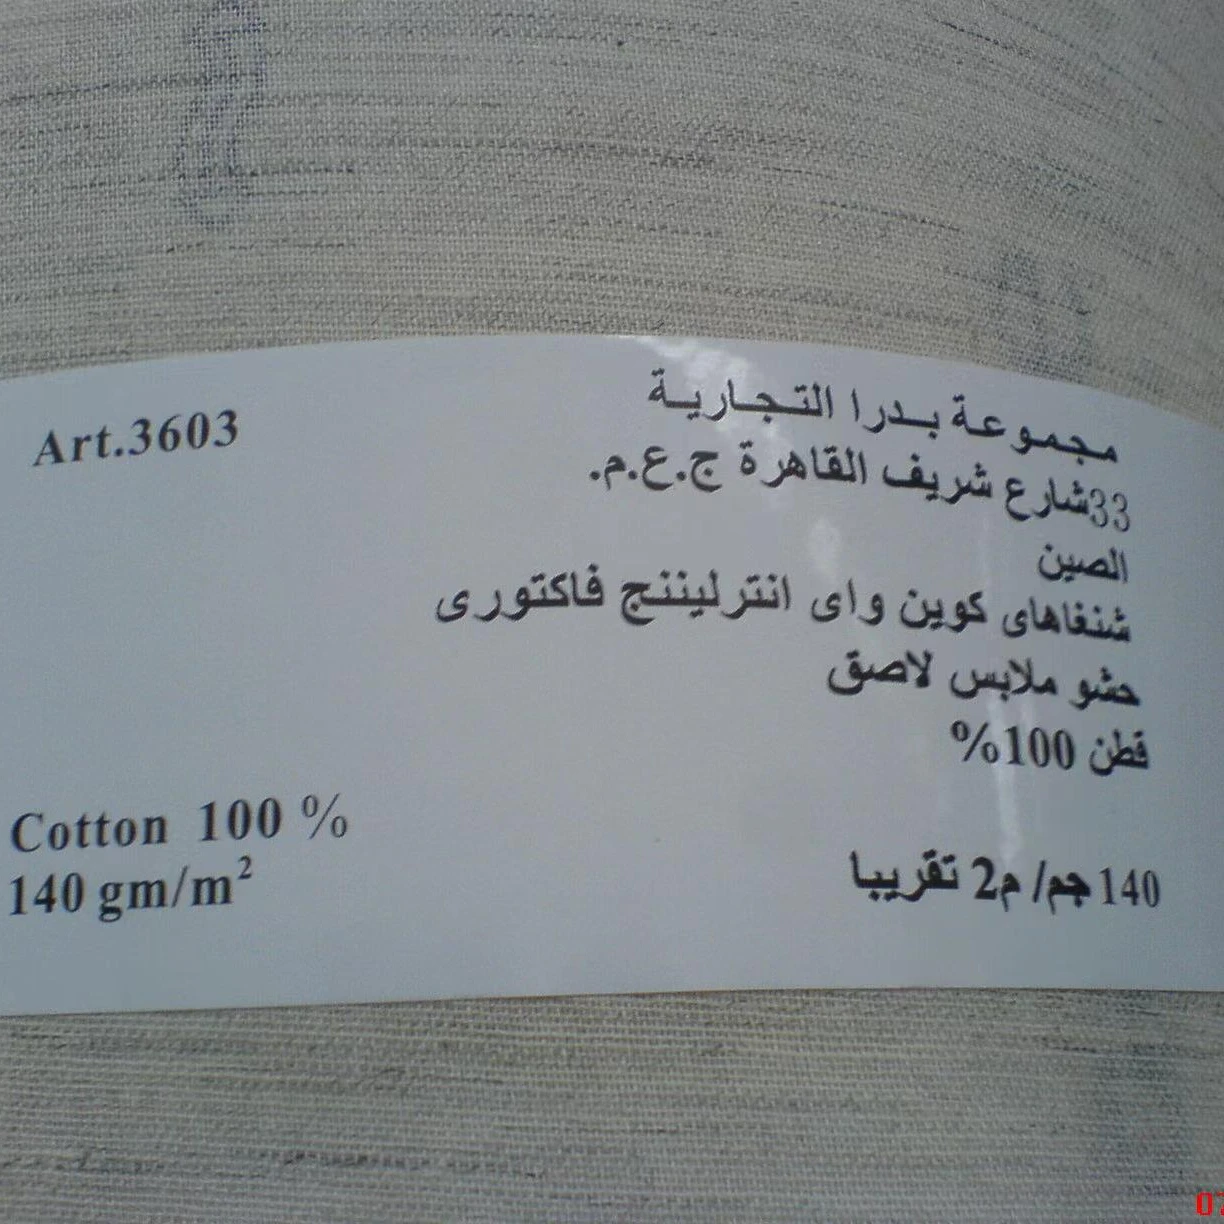 Art.3603
مجموعة بدرا التجارية
33شارع شريف القاهرة ج.ع.م.
الصين
شنغاهاى كوين واى انترليننج فاكتورى
حشو ملابس لاصق
قطن 100%
Cotton 100 %
140 gm/m²
140 جم/ م2 تقريبا